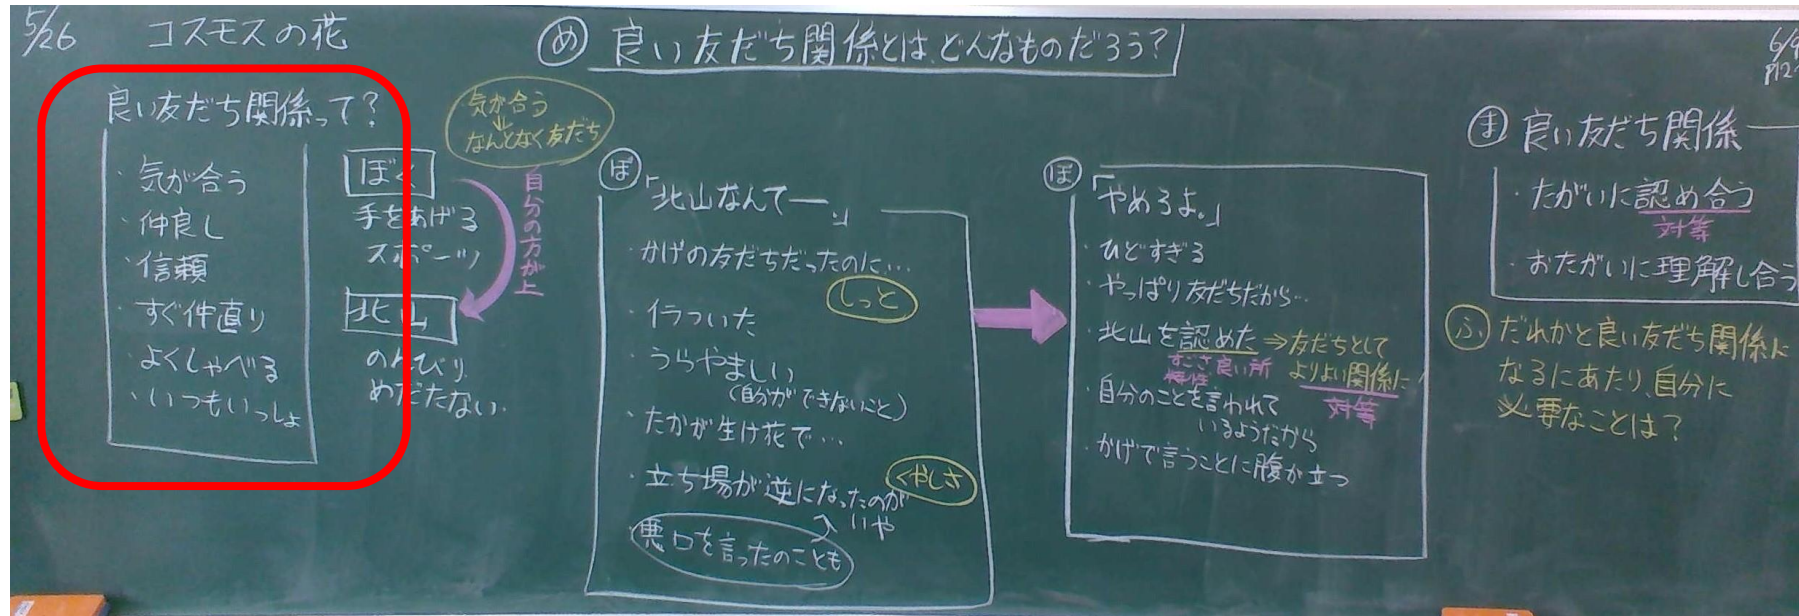 5/26 コスモスの花
め 良い友だち関係とは、どんなものだろう?
6/9
良い友だち関係って?
・気が合う
・仲良し
・信頼
・すぐ仲直り
・よくしゃべる
・いつもいっしょ
気が合う
↓
なんとなく友だち
ぼく
手をあげる
スポーツ
自分の方が上
北山
のんびり
めだたない
ぼ
「北山なんてー。」
・かげの友だちだったのに…
しっと
・イラついた
・うらやましい
(自分ができないこと)
・たかが生け花で…
くやしさ
・立ち場が逆になったのが
いや
・悪口を言ったのことも
ぼ
「やめろよ。」
・ひどすぎる
・やっぱり友だちだから…
・北山を認めた⇒友だちとして
すごさ 良い所
よりよい関係に
対等
・自分のことを言われて
いるようだから
・かげで言うことに腹が立つ
ま 良い友だち関係
・たがいに認め合う
対等
・おたがいに理解し合う
ふ だれかと良い友だち関係に
なるにあたり、自分に
必要なことは?